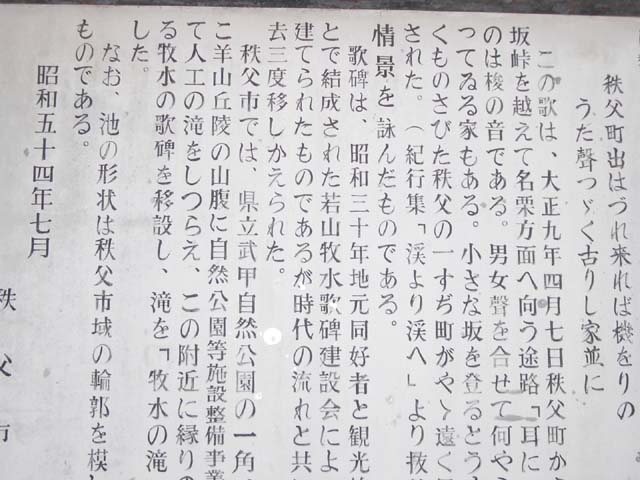 秩父町出はづれ来れば機をりの
うた聲つゞく古りし家並に
この歌は、大正九年四月七日秩父町から
坂峠を越えて名栗方面へ向う途路「耳に
のは梭の音である。男女聲を合せて何やら
つてゐる家もある。小さな坂を登るとうす
くものさびた秩父の一すぢ町がやゝ遠く
された。（紀行集「渓より渓へ」より抜
情景を詠んだものである。
歌碑は、昭和三十年地元同好者と観光
とで結成された若山牧水歌碑建設会によ
建てられたものであるが時代の流れと共に
去三度移しかえられた。
秩父市では、県立武甲自然公園の一角
こ羊山丘陵の山腹に自然公園等施設整備事業
て人工の滝をしつらえ、この附近に縁りの
る牧水の歌碑を移設し、滝を「牧水の滝
した。
なお、池の形状は秩父市域の輪郭を模し
ものである。
昭和五十四年七月
秩父市